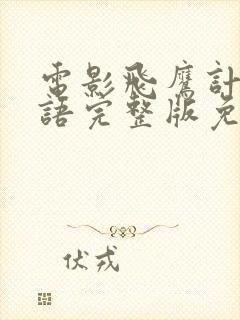 電影飛鷹計
語完整版免
伏戎